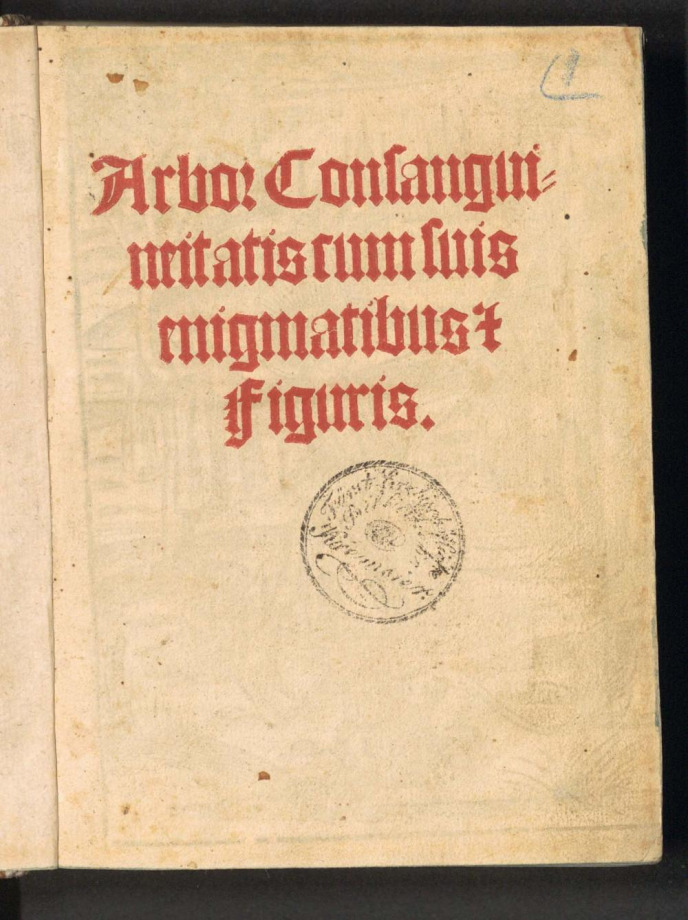 1
Arbor Consangui⸗
neitatis cum suis
enigmatibus ⁊
Figuris.